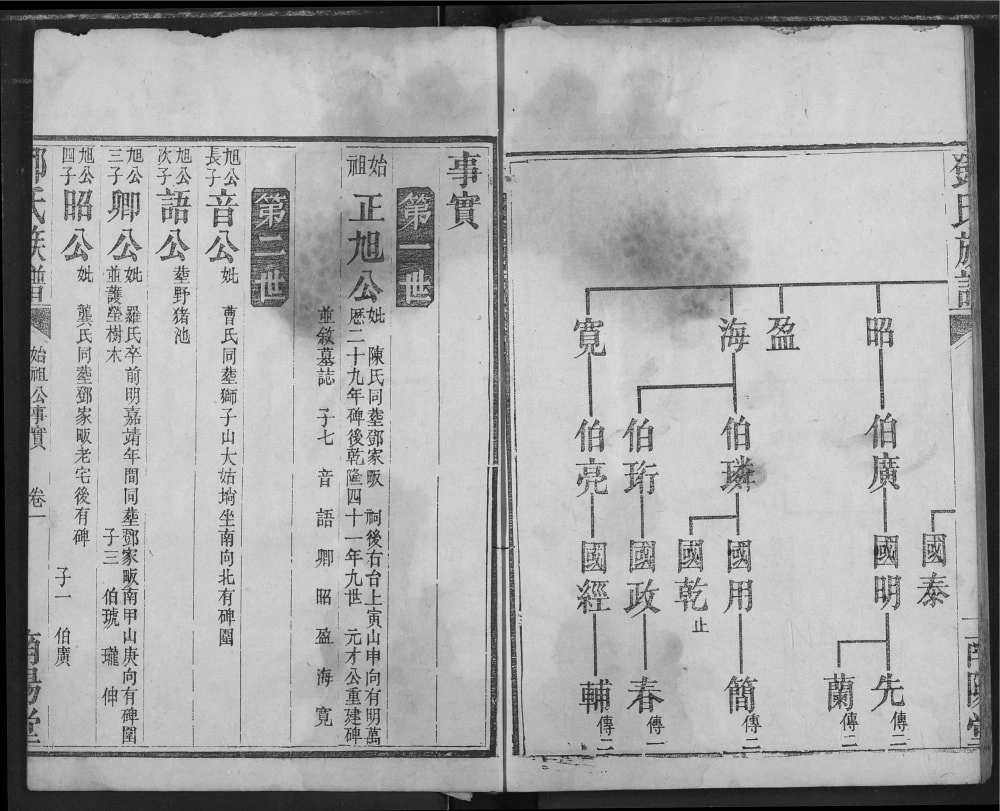 鄧氏族譜
南陽堂
國泰
昭
伯廣
國明
先 傳二
蘭 傳二
盈
海
伯璘
國用
簡 傳二
國乾 止
伯珩
國政
春 傳一
寬
伯亮
國經
輔 傳二
事實
第一世
始祖 正旭公 妣 陳氏同塟鄧家畈 祠後右台上寅山申向有明萬
厯二十九年碑後乾隆四十一年九世 元才公重建碑
並敘墓誌 子七 音 語 卿 昭 盈 海 寬
第二世
旭公長子 音公 妣 曹氏同塟獅子山大姑塆坐南向北有碑圍
旭公次子 語公 塟野猪池
旭公三子 卿公 妣 羅氏卒前明嘉靖年間同塟鄧家畈南甲山庚向有碑圍
並護塋樹木 子三 伯琥 瓏 伸
旭公四子 昭公 妣 龔氏同塟鄧家畈老宅後有碑
子一 伯廣
鄧氏族譜 始祖公事實 卷一 南陽堂